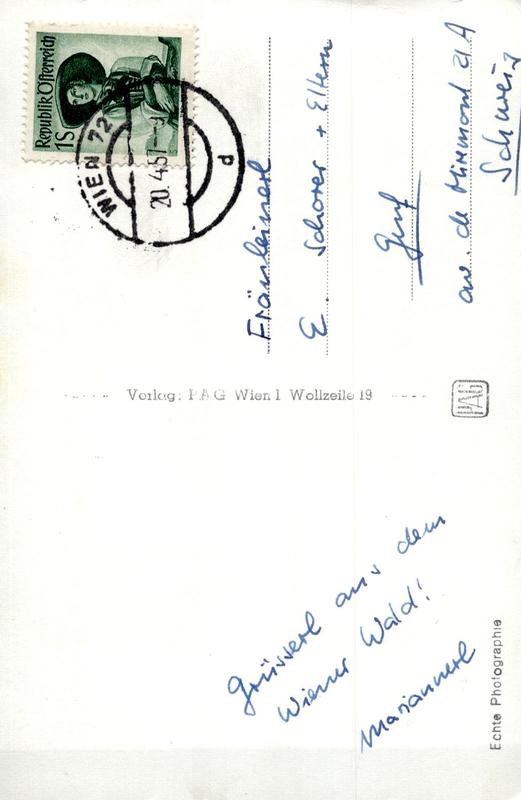 Republik Österreich
1S
WIEN 72
20.4.57
d
Fräulein
E. Schorer + Eltern
Genf
av. de Miremont 21A
Schweiz
Verlag: PAG Wien 1 Wollzeile 19
PAG
Grüsserl aus dem
Wiener Wald!
Mariannerl
Echte Photographie